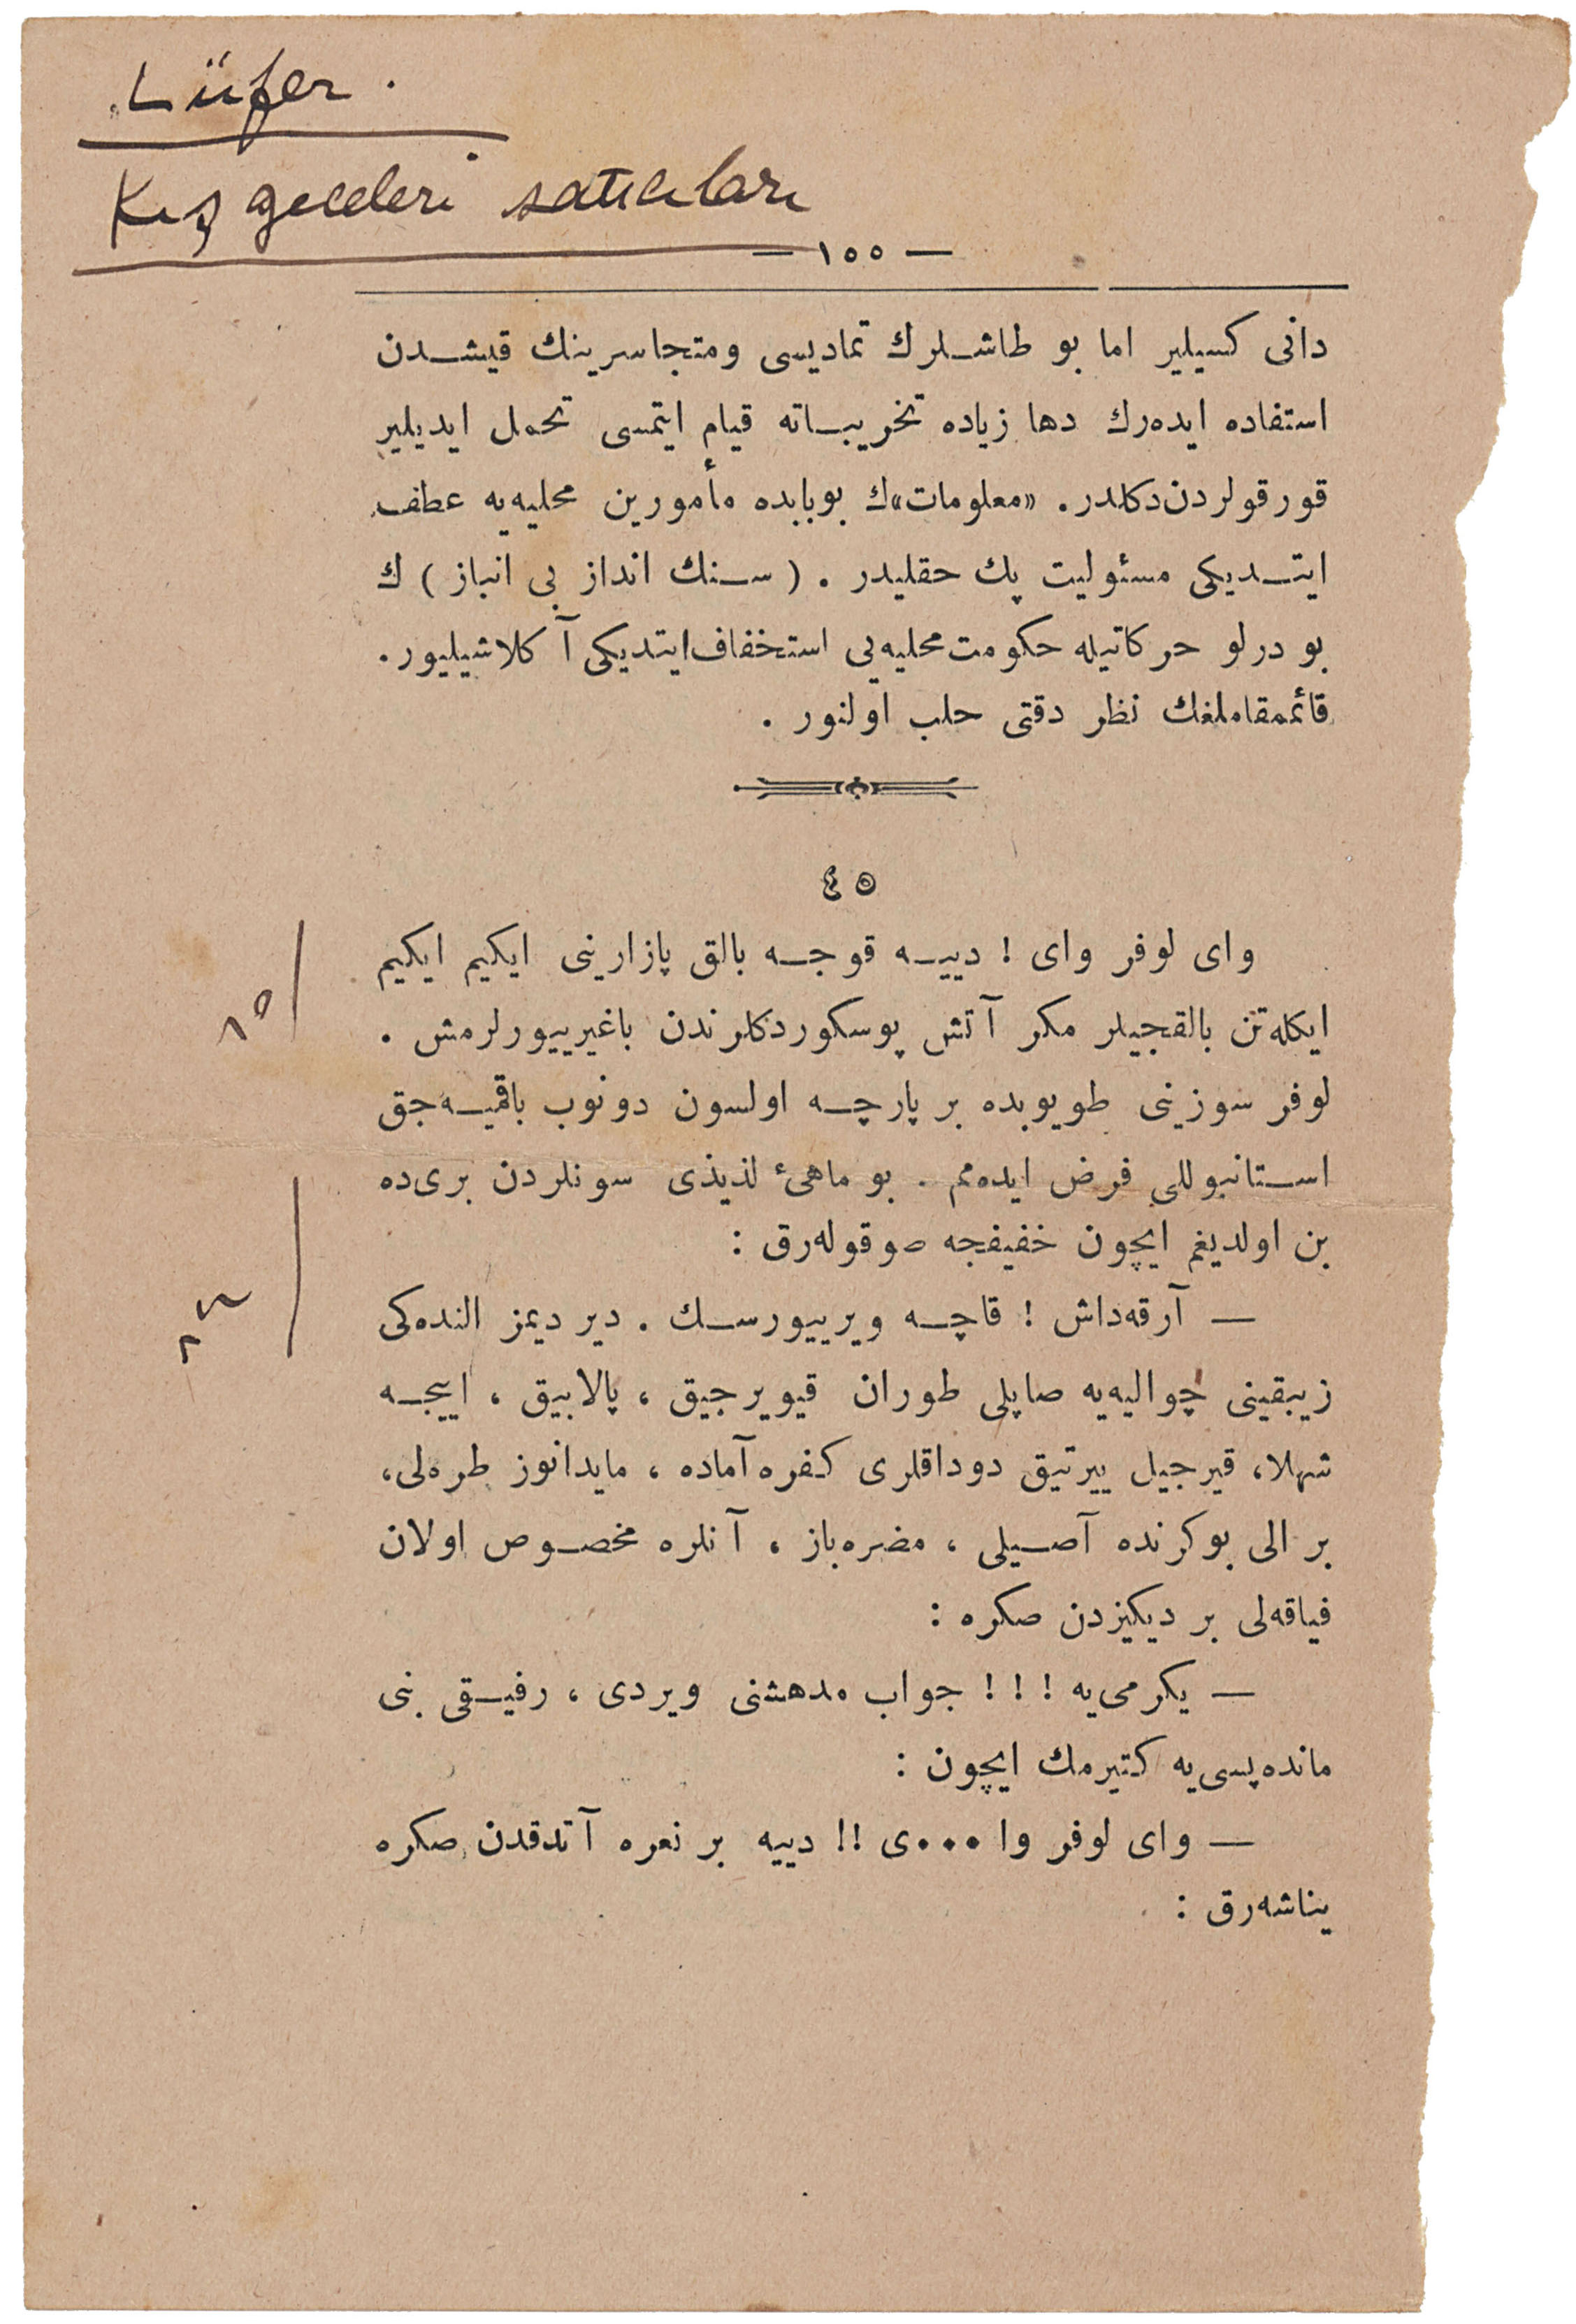 Lüfer.
Kış geceleri satıcıları
— ١٥٥ —
دانی كسیلیر اما بو طاشلرك تمادیسی ومتجاسرینك قیشدن
استفاده ایده‌رك دها زیاده تخریباته قیام ایتمسی تحمل ایدیلیر
قورقولردن دكلدر. «معلومات»ك بوبابده مأمورین محلیه‌یه عطف
ایتدیكی مسئولیت پك حقلیدر . ( سنك انداز بی انباز ) ك
بو درلو حركاتیله حكومت محلیه‌یی استخفاف ایتدیكی آكلاشیلیور.
قائممقاملغك نظر دقتی حلب اولنور .
٤٥
وای لوفر وای ! دییه قوجه بالق پازارینی ایكیم ایكیم
ایكله‌تن بالقجیلر مكر آتش پوسكوردكلرندن باغیرییورلرمش .
لوفر سوزینی طویوبده بر پارچه اولسون دونوب باقمیه‌جق
استانبوللی فرض ایده‌مم . بو ماهیٔ لذیذی سونلردن بری‌ده
بن اولدیغم ایچون خفیفجه صوقوله‌رق :
— آرقه‌داش ! قاچه ویرییورسك . دیر دیمز النده‌كی
زیبقینی چوالیه‌یه صاپلی طوران قیویرجیق ، پالابیق ، اییجه
شهلا، قیرجیل ییرتیق دوداقلری كفره آماده ، مایدانوز طره‌لی،
بر الی بوكرنده آصیلی ، مضره‌باز ، آنلره مخصوص اولان
فیاقه‌لی بر دیكیزدن صكره :
— یكرمی‌یه ! ! ! جواب مدهشنی ویردی ، رفیقی بنی
مانده‌پسی‌یه كتیرمك ایچون :
— وای لوفر وا ٠٠٠ی !! دییه بر نعره آتدقدن صكره
یناشه‌رق :